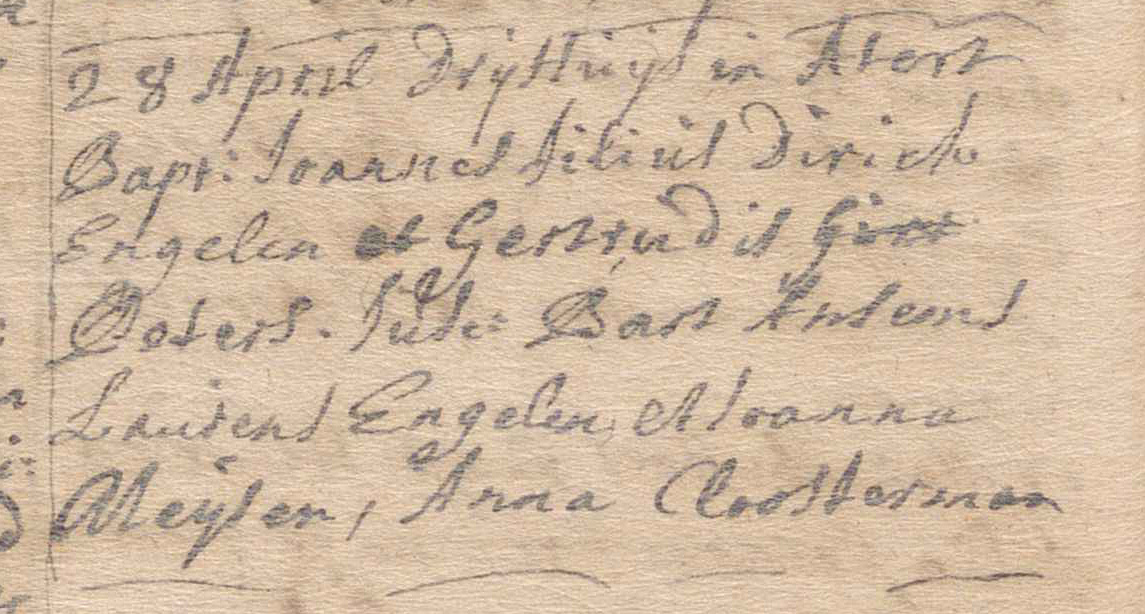 28 April Drijhuijs in Atert
Bapt: Joannes filius Dirick
Engelen et Gertrudis
Peters. Susc: Bart Ansems
Laurens Engelen, et Joanna
Meijsen, Anna Cloosterman